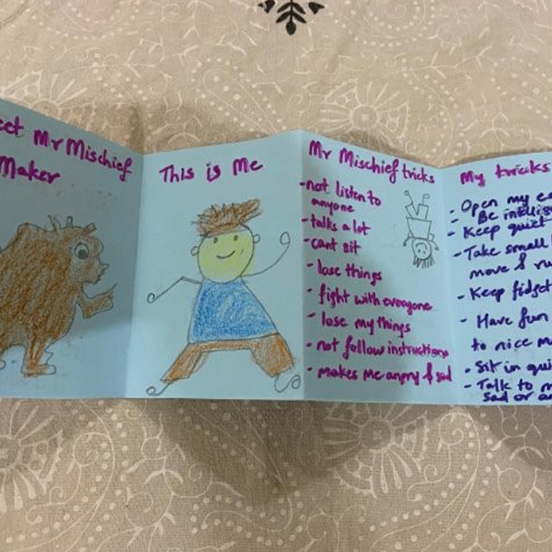 Mr Mischief
Maker
This is Me
Mr Mischief tricks
-not listen to
anyone
-talks a lot
-cant sit
- lose things
- fight with everyone
- lose my things
- not follow instructions
- makes me angry & sad
My tricks
- Open my
Be
- Keep quiet
- Take small
move &
- Keep fidget
- Have fun
to nice
- Sit in
- Talk to
sad or